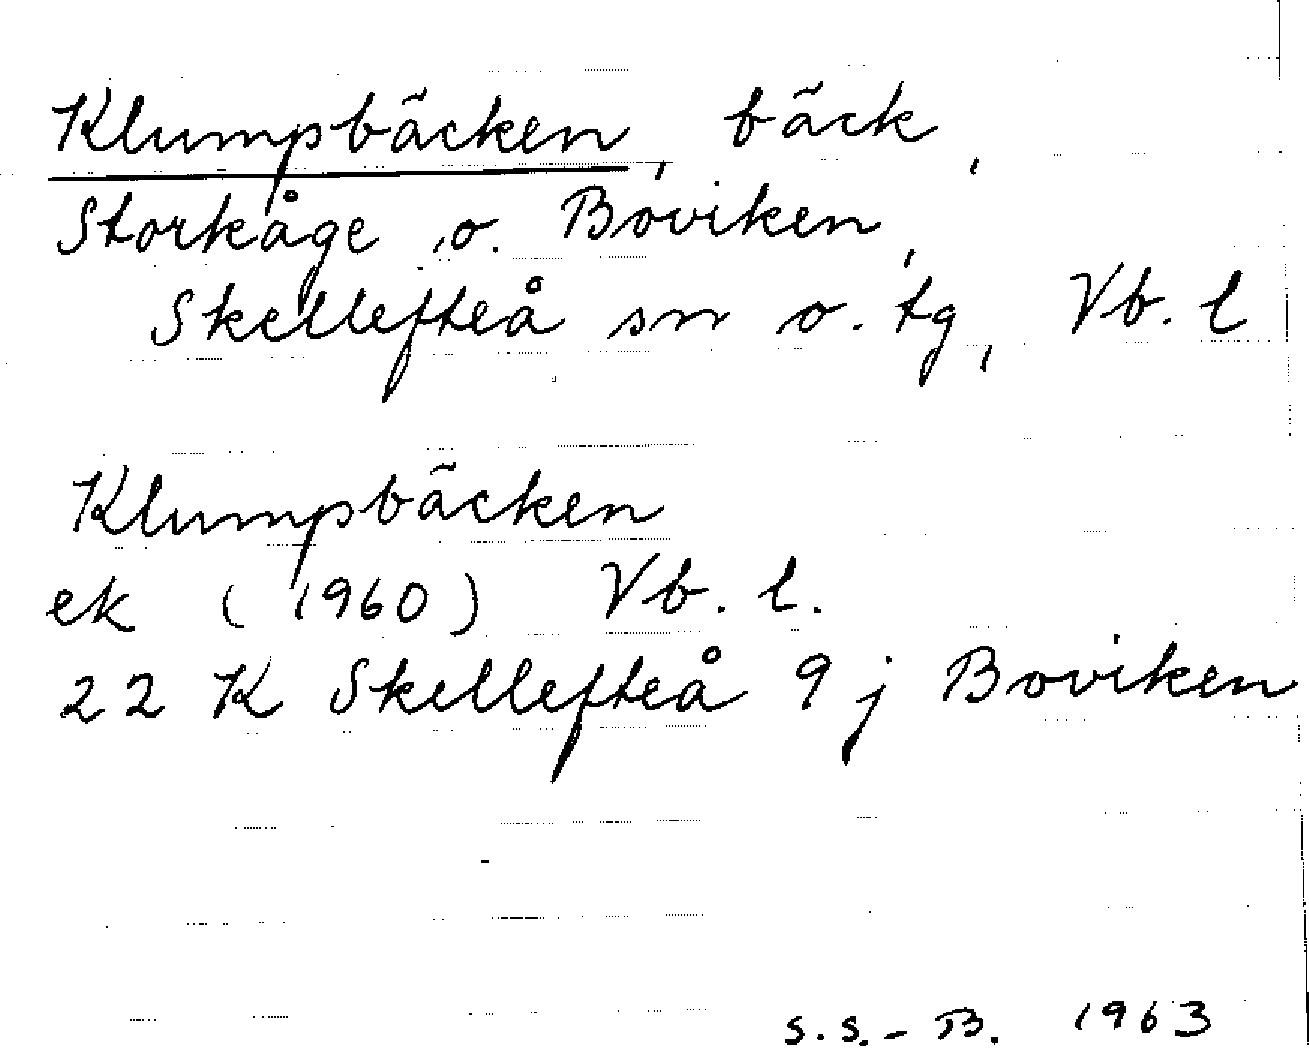 Klumpbäcken, bäck,
Storkåge o. Boviken,
Skellefteå sn o. tg, Vb. l
Klumpbäcken
ek (1960) Vb. l.
22 K Skellefteå 9 j Boviken
S.S.-B. 1963